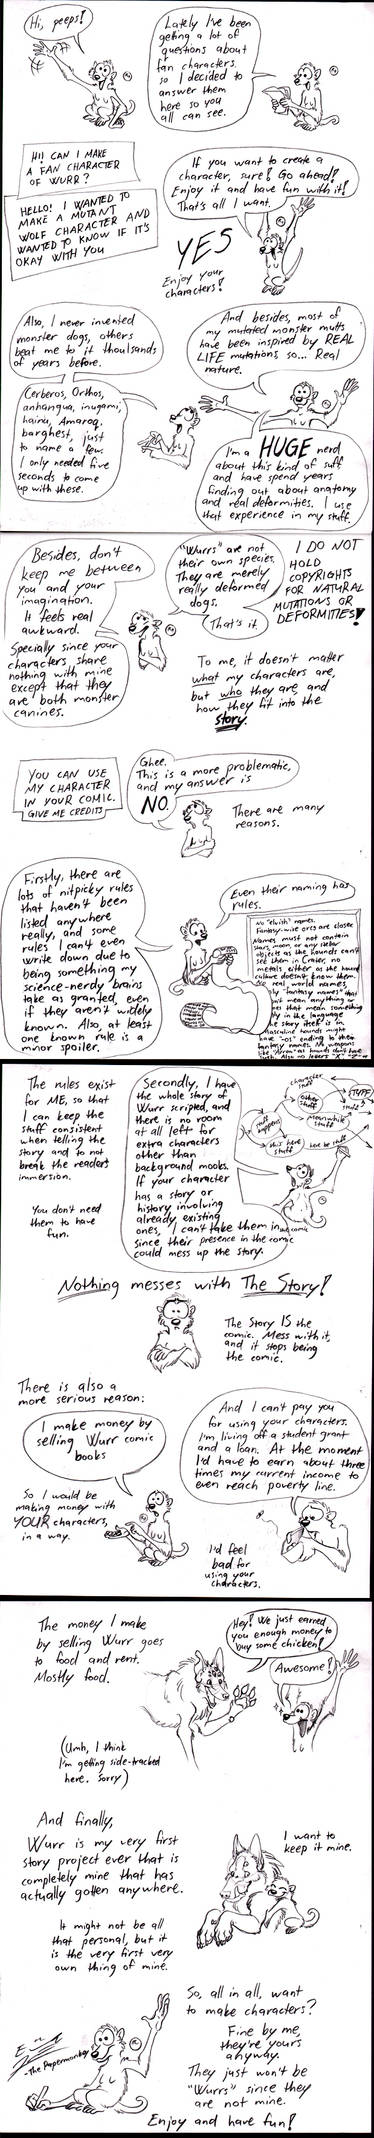 Hi, peeps!
Lately I've been
getting a lot of
questions about
fan characters.
so I decided to
answer them
here so you
all can see.
HI! CAN I MAKE
A FAN CHARACTER
OF WURR?
HELLO! I WANTED TO
MAKE A MUTANT
WOLF CHARACTER AND
WANTED TO KNOW IF IT'S
OKAY WITH YOU
If you want to create a
character, sure! Go ahead!
Enjoy it and have fun with it!
That's all I want.
YES
Enjoy your
characters!
Also, I never invented
monster dogs, others
beat me to it thoulsands
of years before.
Cerberos, Orthos,
anhangua, inugami,
hainu, Amaroq,
barghest, just
to name a few.
I only needed five
seconds to come
up with these.
And besides, most of
my mutated monster mutts
have been inspired by REAL
LIFE mutations, so... Real
nature.
I'm a HUGE nerd
about this kind of suff
and have spend years
finding out about anatomy
and real deformities. I use
that experience in my stuff.
Besides, don't
keep me between
you and your
imagination.
It feels real
awkward.
Specially since your
characters share
nothing with mine
except that they
are both monster
canines.
"Wurrs" are not
their own species.
They are merely
really deformed
dogs.
That's it.
I DO NOT
HOLD
COPYRIGHTS
FOR NATURAL
MUTATIONS OR
DEFORMITIES!
To me, it doesn't matter
what my characters are,
but who they are, and
how they fit into the
story.
YOU CAN USE
MY CHARACTER
IN YOUR COMIC.
GIVE ME CREDITS
Ghee.
This is a more problematic,
and my answer is
NO.
There are many
reasons.
Firstly, there are
lots of nitpicky rules
that haven't been
listed anywhere
really, and some
rules I can't even
write down due to
being something my
science-nerdy brains
take as granted, even
if they aren't widely
known. Also, at least
one known rule is a
minor spoiler.
Even their naming has
rules.
No "elvish" names.
Fantasy-wise orcs are closer
Names must not contain
stars, moon, or any
objects as the hounds can't
see them in Crater, no
metals either as the hound
culture doesn't know them.
real world names,
"fantasy names" that
mean anything or
that mean something
in the language
the story itself is in
masculine hounds might
have "-os" ending to their
fantasy names. No weapons
like "Arrow" as hounds don't have
The rules exist
for ME, so that
I can keep the
stuff consistent
when telling the
story and to not
break the readers
immersion.
You don't need
them to have
fun.
Secondly, I have
the whole story of
Wurr scripted, and
there is no room
at all left for
extra characters
other than
background mooks.
If your character
has a story or
history involving
already existing
ones, I can't take them in comic
since their presence in the comic
could mess up the story.
character
stuff
other
stuff
STUFF
stuff
happens
meanwhile
stuff
this here
stuff
here be stuff
Nothing messes with The Story!
The Story IS the
comic. Mess with it,
and it stops being
the comic.
There is also a
more serious reason:
I make money by
selling Wurr comic
books
So I would be
making money with
YOUR characters,
in a way.
And I can't pay you
for using your characters.
I'm living off a student grant
and a loan. At the moment
I'd have to earn about three
times my current income to
even reach poverty line.
I'd feel
bad for
using your
characters.
The money I make
by selling Wurr goes
to food and rent.
Mostly food.
Hey! We just earned
you enough money to
buy some chicken!
Awesome!
(Umh, I think
I'm getting side-tracked
here. Sorry)
And finally,
Wurr is my very first
story project ever that is
completely mine that has
actually gotten anywhere.
I want to
keep it mine.
It might not be all
that personal, but it
is the very first very
own thing of mine.
So, all in all, want
to make characters?
Fine by me,
they're yours
anyway.
They just won't be
"Wurrs" since they
are not mine.
-The Papermonkey
Enjoy and have fun!